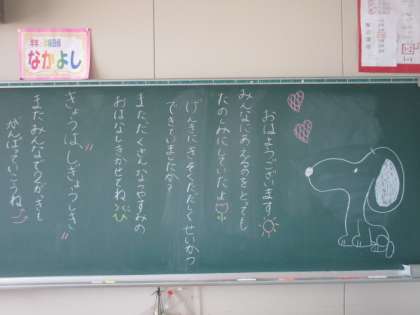 なかよし
おはようございます
みんなにあえるのをとっても
たのしみにしていたよ
げんきにきそくただしくせいかつ
できていましたか？
またたくさんなつやすみの
おはなしきかせてね
きょうはしぎょうしき
またみんなで2がっきも
がんばっていこうね